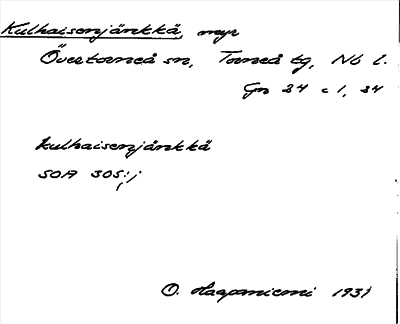 Kulhaisenjänkkä, myr
Övertorneå sn, Torneå tg, Nb l.
Gn 24 c 1, 34
kulhaisenjänkkä
SOA 305;j
O. Haapaniemi 1931